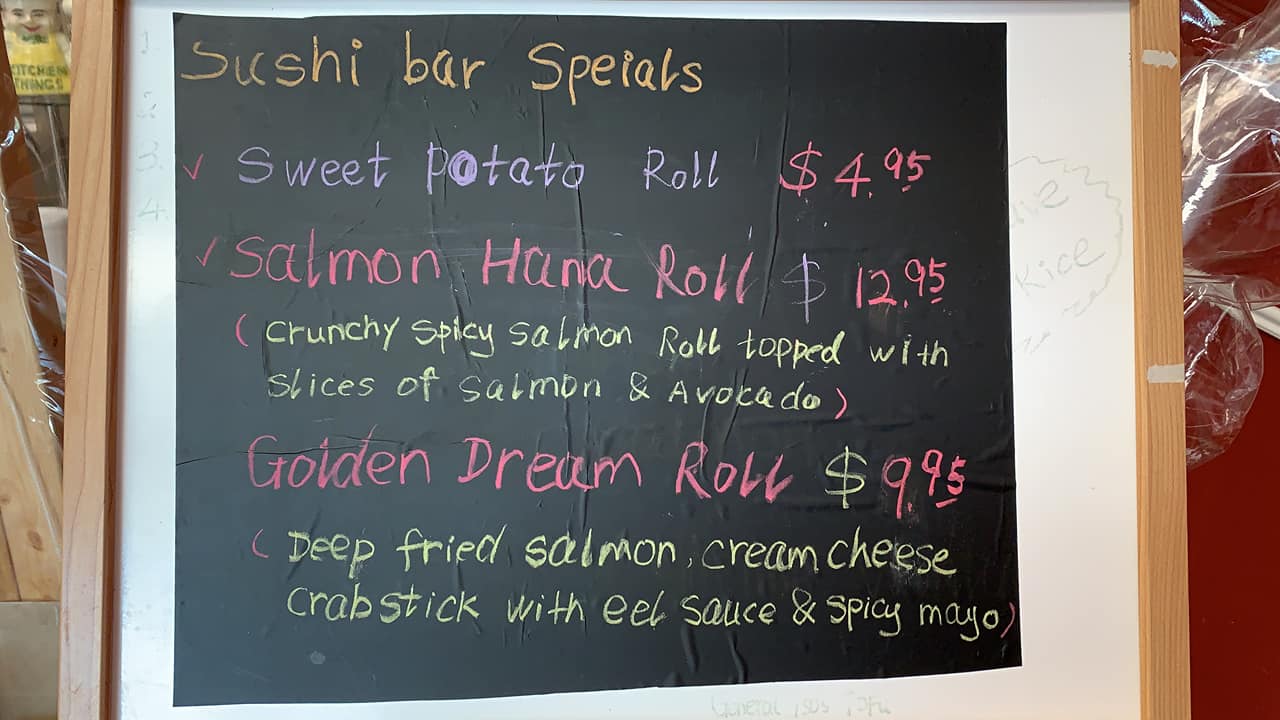 Sushi bar Speials
✓ Sweet potato Roll $ 4.95
✓ Salmon Hana Roll $ 12.95
( Crunchy Spicy Salmon Roll topped with
Slices of Salmon & Avocado )
Golden Dream Roll $ 9.95
( Deep fried salmon, cream cheese
crab stick with eel sauce & spicy mayo )
KITCHEN
THINGS
1.
2.
3.
4.
Rice
General